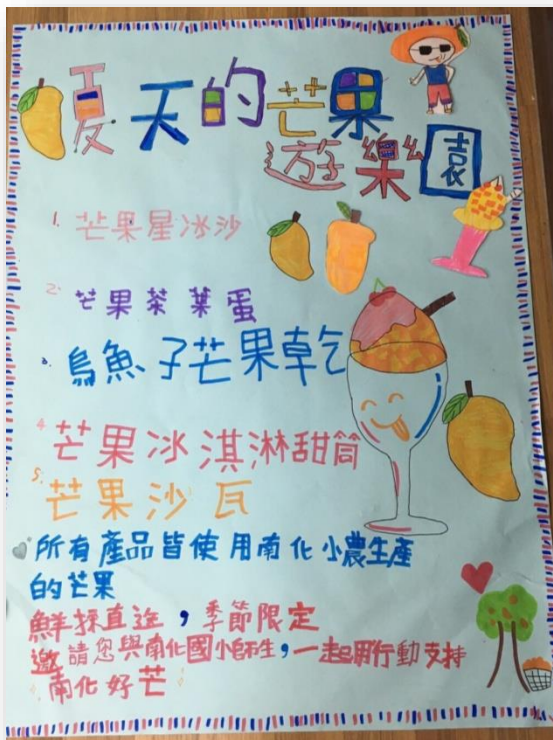 夏天的芒果
遊樂園
1. 芒果星冰沙
2. 芒果茶葉蛋
3. 烏魚子芒果乾
4. 芒果冰淇淋甜筒
5. 芒果沙瓦
所有產品皆使用南化小農生產
的芒果
鮮採直送，季節限定
邀請您與南化國小師生，一起用行動支持
南化好芒